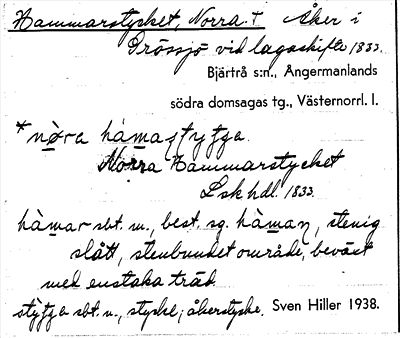 Hammarstycket, Norra. † Åker i
Prössjö vid lagaskifte 1833.
Bjärtrå s:n., Ångermanlands
södra domsagas tg., Västernorrl. l.
*nøra hàmaʃtyʃʃa.
Norra Hammarstycket
Lskhdl. 1833.
hàmar sbt. m., best. sg. hàman, stenig
slått, stenbundet område, beväxt
med enstaka träd.
sbt. n., stycke; åkerstycke. Sven Hiller 1938.